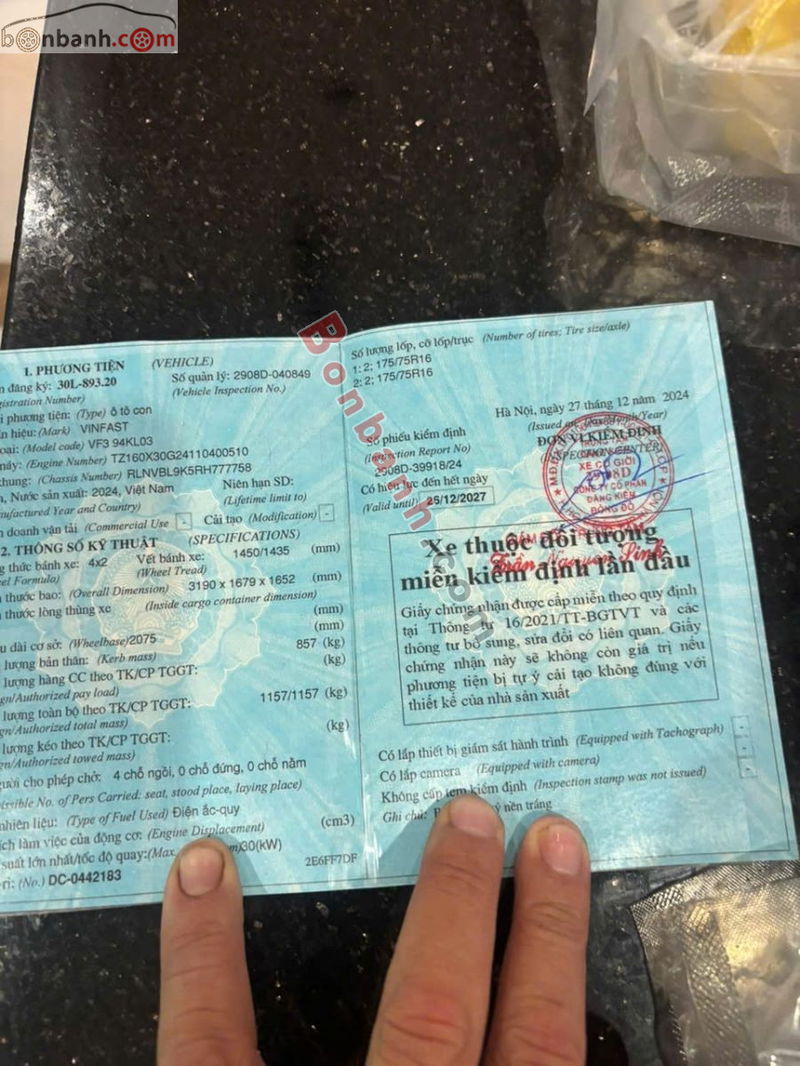 bonbanh.com
1. PHƯƠNG TIỆN (VEHICLE)
đăng ký: 30L-893.20 Số quản lý: 2908D-040849
Number) (Vehicle Inspection No.)
phương tiện: (Type) ô tô con
hiệu: (Mark) VINFAST
(Model code) VF3 94KL03
(Engine Number) TZ160X30G24110400510
khung: (Chassis Number) RLNVBL9K5RH777758
Nước sản xuất: 2024, Việt Nam Niên hạn SD:
Year and Country) (Lifetime limit to)
doanh vận tải (Commercial Use - Cải tạo (Modification) -
2. THÔNG SỐ KỸ THUẬT (SPECIFICATIONS)
thức bánh xe: 4x2 Vết bánh xe: 1450/1435 (mm)
Formula) (Wheel Tread)
thước bao: (Overall Dimension) 3190 x 1679 x 1652 (mm)
thước lòng thùng xe (Inside cargo container dimension)
(mm)
(mm)
dài cơ sở: (Wheelbase) 2075
lượng bản thân: (Kerb mass) 857 (kg)
lượng hàng CC theo TK/CP TGGT: (kg)
pay load)
lượng toàn bộ theo TK/CP TGGT: 1157/1157 (kg)
total mass)
lượng kéo theo TK/CP TGGT: (kg)
towed mass)
người cho phép chở: 4 chỗ ngồi, 0 chỗ đứng, 0 chỗ nằm
No. of Pers Carried: seat, stood place, laying place)
nhiên liệu: (Type of Fuel Used) Điện ắc-quy
tích làm việc của động cơ: (Engine Displacement) (cm3)
suất lớn nhất/tốc độ quay:(Max. 30(kW)
(No.) DC-0442183 2E6FF7DF
Số lượng lốp, cỡ lốp/trục (Number of tires; Tire size/axle)
1: 2; 175/75R16
2: 2; 175/75R16
Hà Nội, ngày 27 tháng 12 năm 2024
(Issued on: Day/Month/Year)
Số phiếu kiểm định ĐƠN VỊ KIỂM ĐỊNH
(Inspection Report No) (INSPECTION CENTER)
2908D-39918/24
Có hiệu lực đến hết ngày
(Valid until) 25/12/2027
XE CƠ GIỚI
2908D
CÔNG TY CỔ PHẦN
ĐĂNG KIỂM
ĐÔNG ĐÔ
Xe thuộc đối tượng
miễn kiểm định lần đầu
Giấy chứng nhận được cấp miễn theo quy định
tại Thông tư 16/2021/TT-BGTVT và các
thông tư bổ sung, sửa đổi có liên quan. Giấy
chứng nhận này sẽ không còn giá trị nếu
phương tiện bị tự ý cải tạo không đúng với
thiết kế của nhà sản xuất
Có lắp thiết bị giám sát hành trình (Equipped with Tachograph) -
Có lắp camera (Equipped with camera) -
Không cấp tem kiểm định (Inspection stamp was not issued) -
Ghi chú: nền trắng
Bonbanh.com